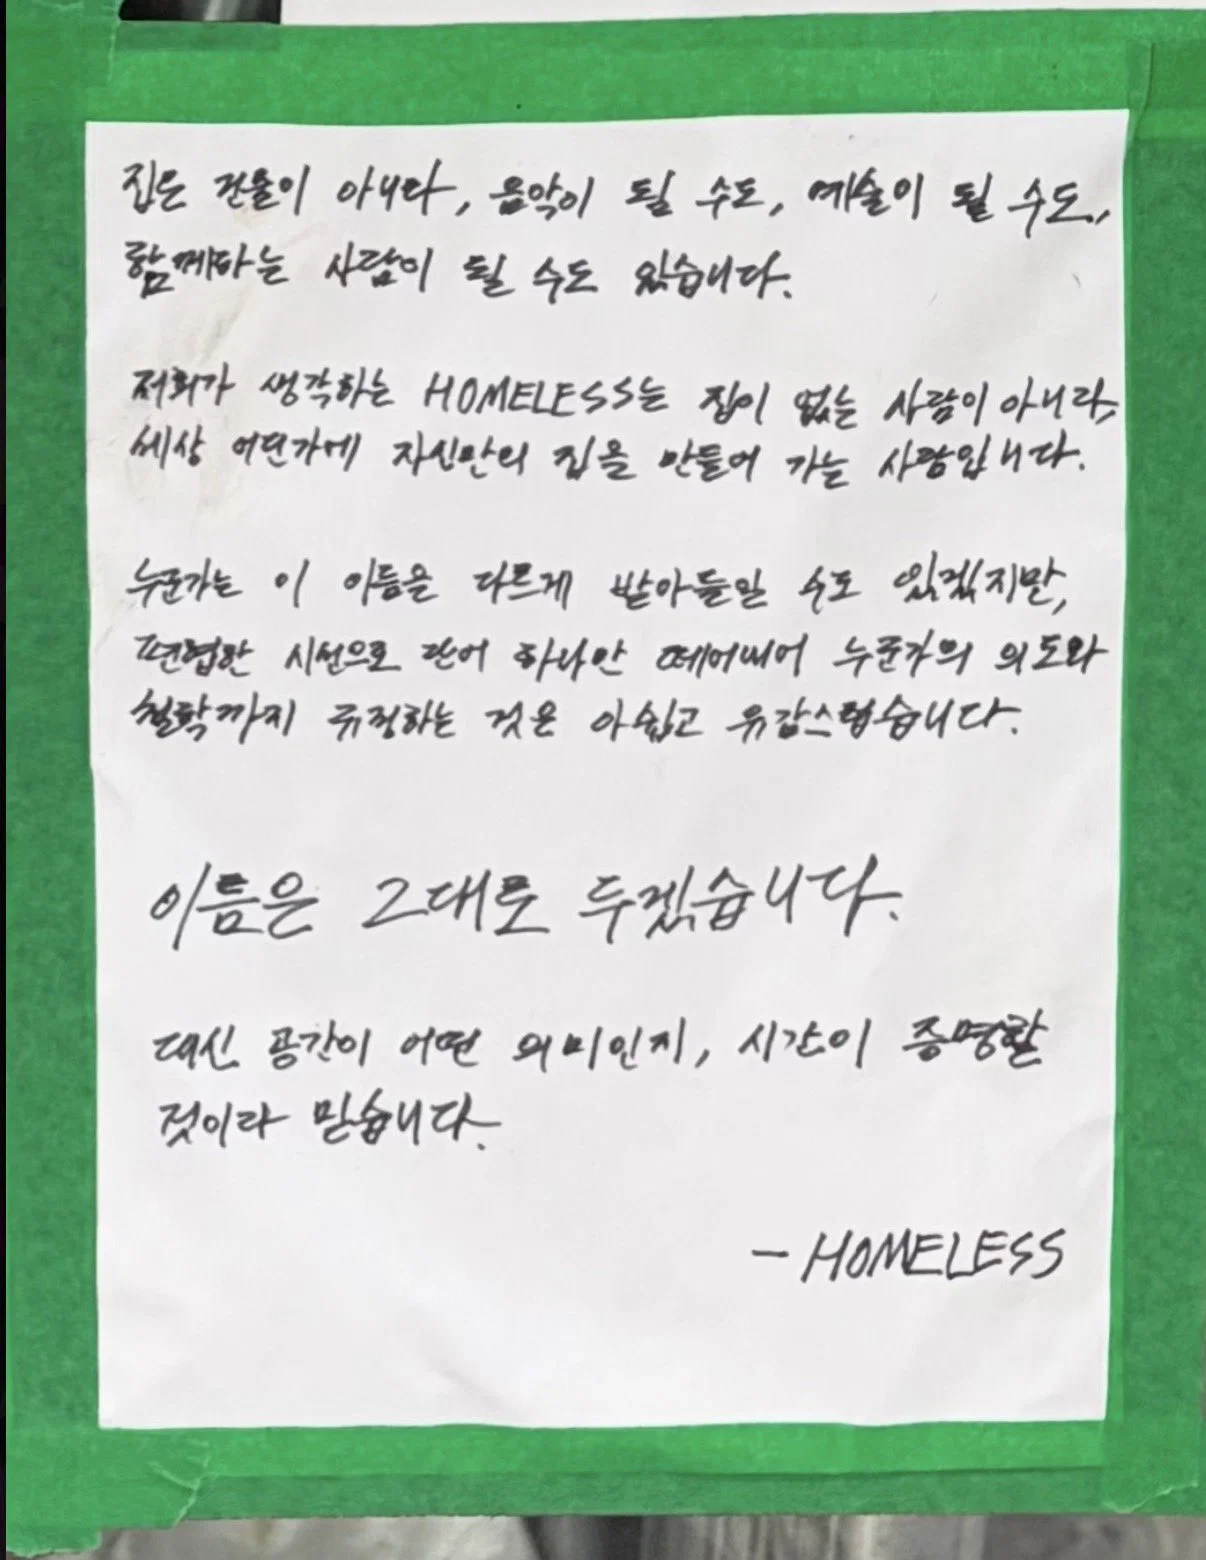 집은 건물이 아니라, 음악이 될 수도, 예술이 될 수도,
함께하는 사람이 될 수도 있습니다.
저희가 생각하는 HOMELESS는 집이 없는 사람이 아니라,
세상 어딘가에 자신만의 집을 만들어 가는 사람입니다.
누군가는 이 이름을 다르게 받아들일 수도 있겠지만,
편협한 시선으로 단어 하나만 떼어내어 누군가의 의도와
철학까지 규정하는 것은 아쉽고 유감스럽습니다.
이름은 그대로 두겠습니다.
대신 공간이 어떤 의미인지, 시간이 증명할
것이라 믿습니다.
- HOMELESS